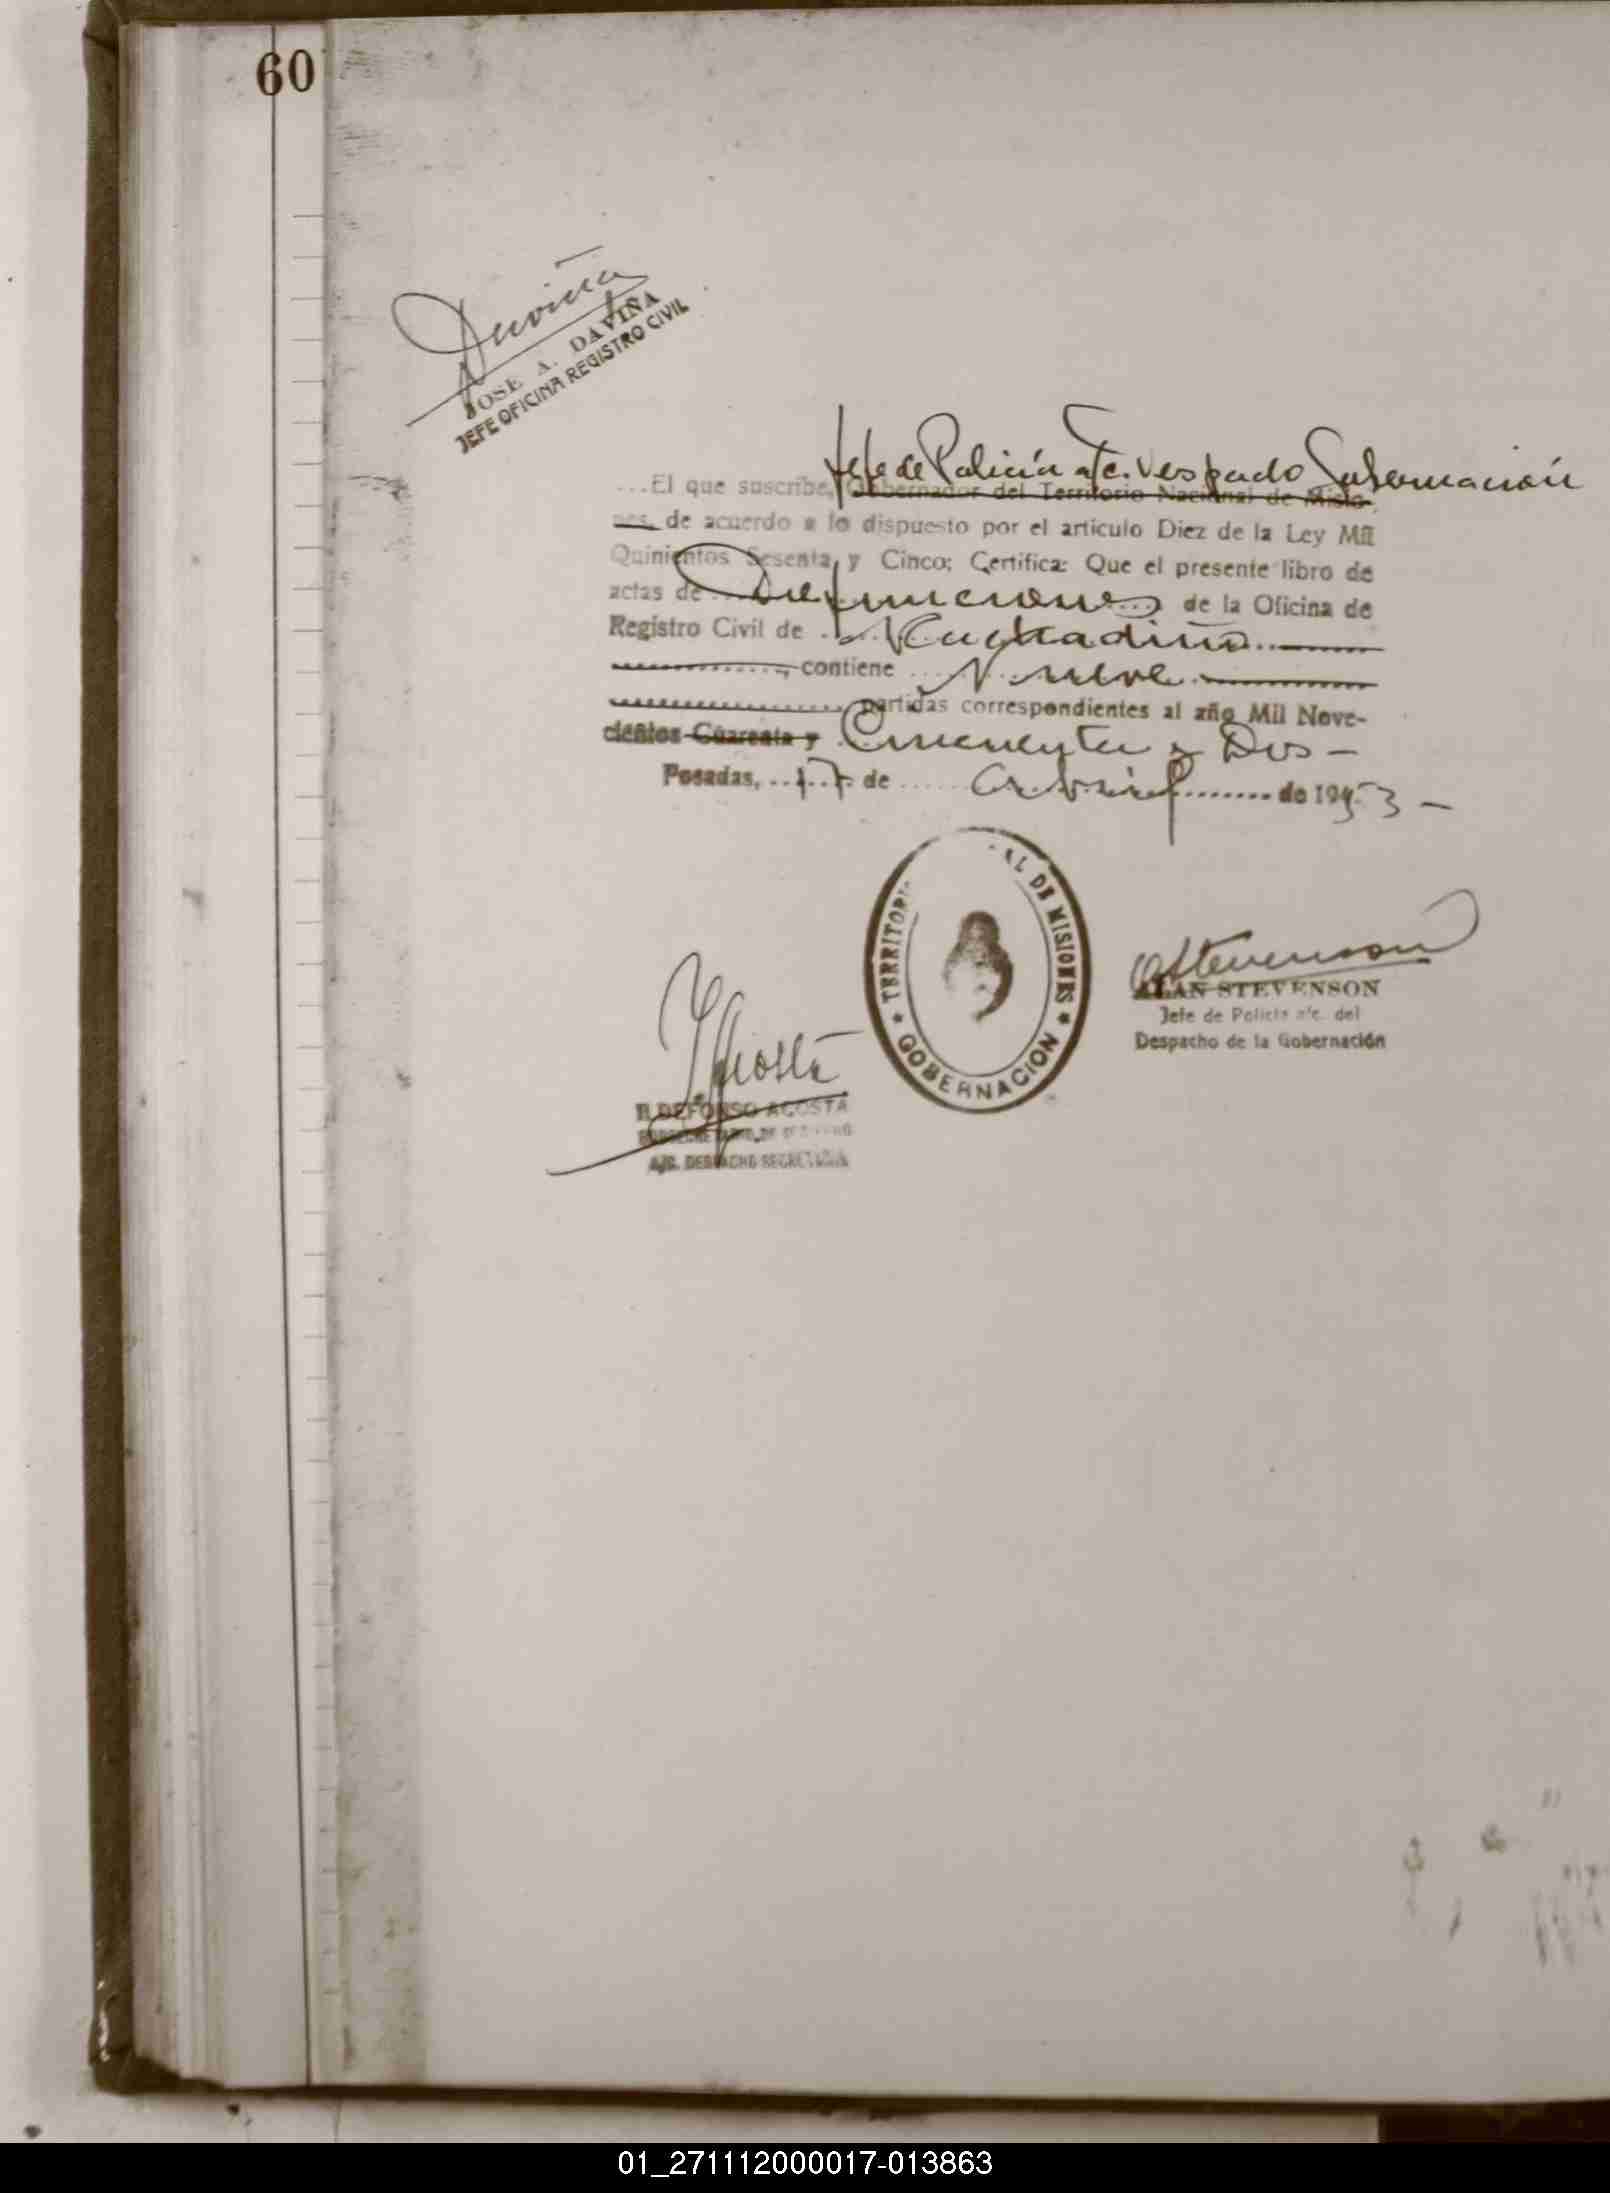 60
Daviña
JOSE A. DAVIÑA
JEFE OFICINA REGISTRO CIVIL
Jefe de Policía a/c. Despacho Gobernación
...El que suscribe, Gobernador del Territorio Nacional de Misio-
nes, de acuerdo a lo dispuesto por el artículo Diez de la Ley Mil
Quinientos Sesenta y Cinco; Certifica: Que el presente libro de
actas de ... Defunciones ... de la Oficina de
Registro Civil de ...
......, contiene ... Nueve ......
......, partidas correspondientes al año Mil Nove-
cientos Cuarenta y Cincuenta y Dos -
Posadas, ..17. de ...... abril ........ de 1953 -
TERRITORIO AL DE MISIONES
* GOBERNACION *
AStevenson
ALAN STEVENSON
Jefe de Policía a/c. del
Despacho de la Gobernación
IAcosta
ILDEFONSO ACOSTA
A/C. DESPACHO SECRETARIA
01_271112000017-013863